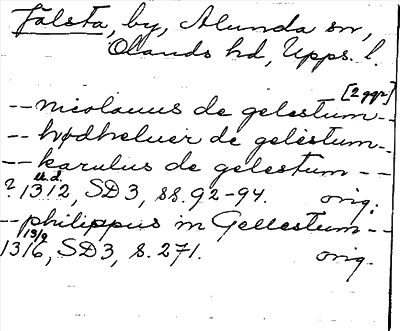 Fålsta, by, Alunda sn,
Olands hd, Upps. l.
[2 ggr]
-- nicolauus de gelestum --
-- hødheluer de gelestum --
-- karulus de gelestum --
u.d.
? 1312, SD3, ss. 92-94. orig.
-- philippus in Gellestum --
13/9
1316, SD3, s. 271. orig.